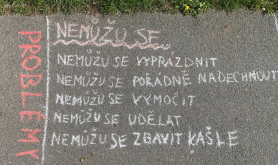 PROBLÉMY
NEMŮŽU SE
NEMŮŽU SE VYPRÁZDNIT
NEMŮŽU SE POŘÁDNĚ NADECHNOUT
NEMŮŽU SE VYMOČIT
NEMŮŽU SE UDĚLAT
NEMŮŽU SE ZBAVIT KAŠLE